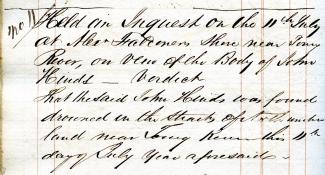 No 11
Held an Inquest on the 11th July
at Alexr Falconers Shore near Toney
River, on view of the Body of John
Hinds — Verdict
That the said John Hinds was found
drowned in the straits of Northumber
land near Toney River this 11th
day of July Year aforesaid —